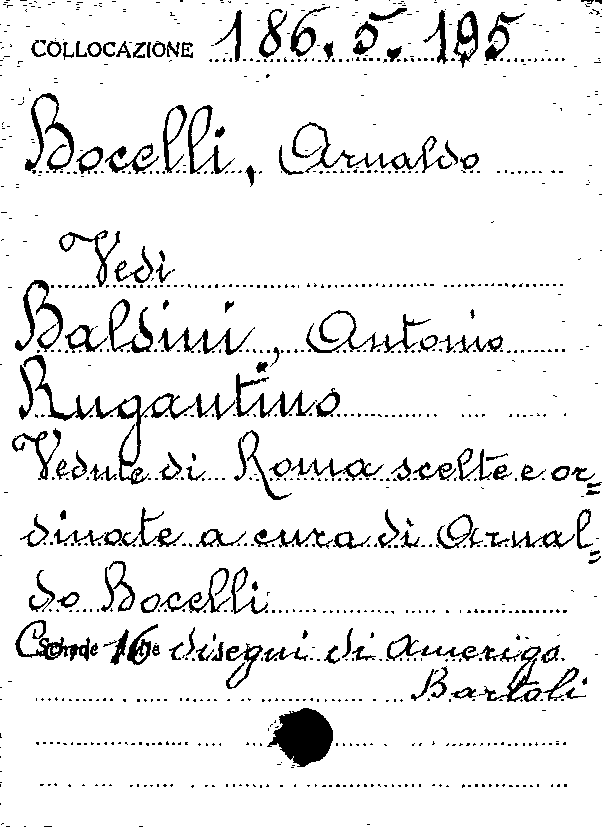 COLLOCAZIONE 186.5.195
Bocelli, Arnaldo
Vedi
Baldini, Antonio
Rugantino
Vedute di Roma scelte e or=
dinate a cura di Arnal=
do Bocelli
Con 16 disegni di Amerigo
Bartoli